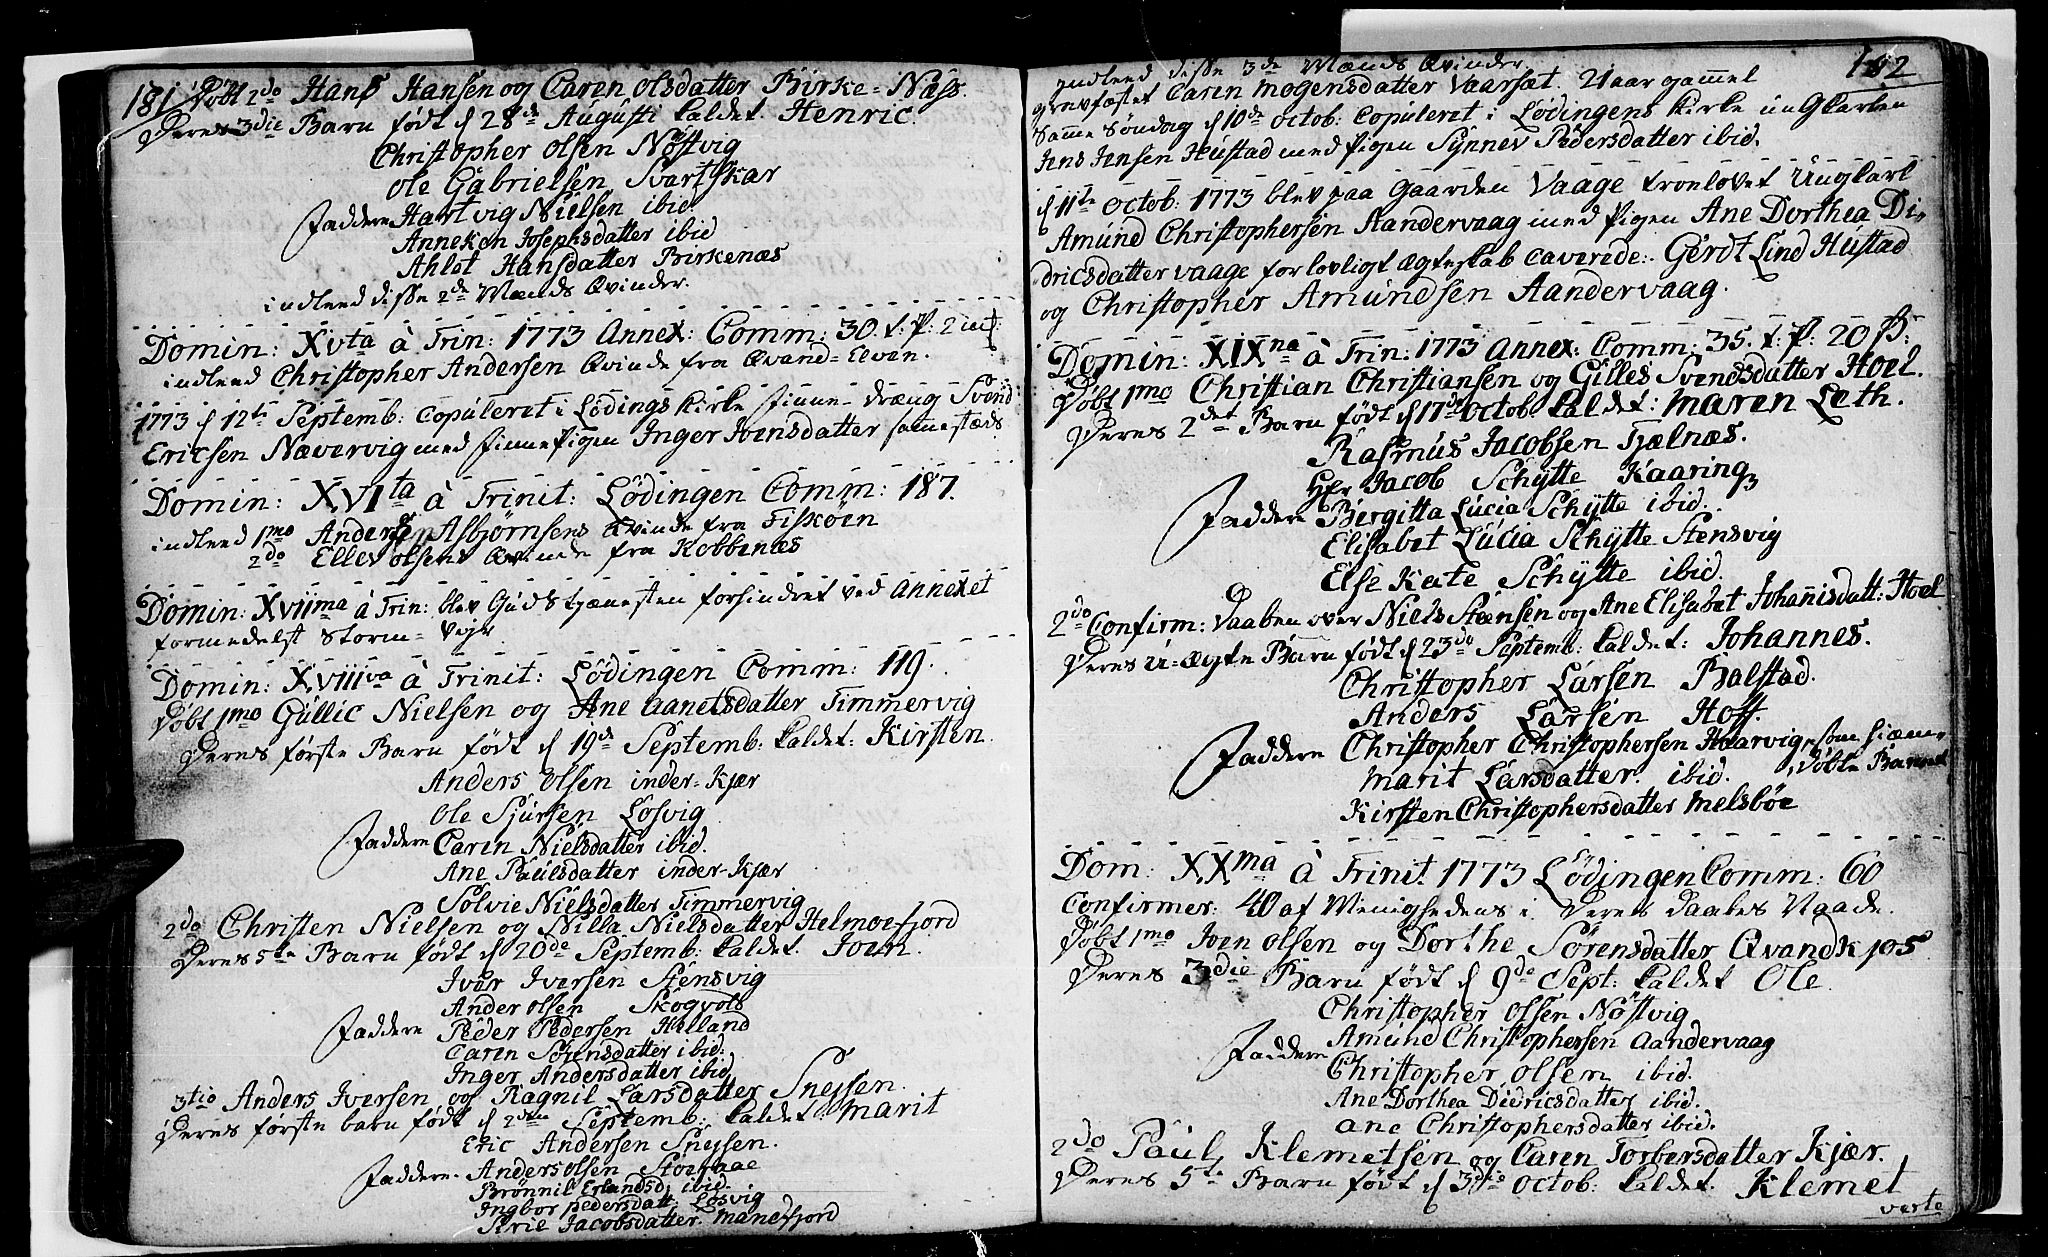 181
Døbt 2do Hans Hansen og Caren Olsdatter Birke=Næss.
Deres 3die Barn født d 28de Augusti kaldet. Henric
Christopher Olsen Nöstvig
Ole Gabrielsen Svartskar
Faddere Hartvig Nielsen ibid
Anneken Josephsdatter ibid
Ahlet Hansdatter Birkenæs
indleed disse 2de Mænds Qvinder.
Domin: XVta à Trin: 1773 Annex: Comm: 30. t: P: 2
indleed Christopher Andersen Qvinde fra Qvand=Elven.
1773 d 12te Septemb: copuleret i Lødings Kirke Finne-dræng Svend
Ericsen Nævervig med Finne Pigen Inger Joensdatter sammestæds
Domin: XVIta à Trinit: Lødingen Comm: 187.
indleed 1mo Anders Asbjörnsens Qvinde fra Fiskøen
2do Ellev olsens Qvinde fra Kobbenæs
Domin: XVIIma à Trin: blev Gudstjænesten forhindret ved Annexet
formedelst Storm=Vejr
Domin: XVIIIva à Trinit: Lödingen Comm: 119.
Døbt 1mo Gullic Nielsen og Ane Aanetsdatter Timmervig
Deres første Barn født d 19de Septemb: kaldet: Kirsten
Anders Olsen inder-Kjær
Ole Sjursen Losvig
Faddere Caren Nielsdatter ibid.
Ane Paulsdatter inder-Kjær
Sölvie Nielsdatter Timmervig
2do Christen Nielsen og Nilla Nielsdatter Helmoefjord
Deres 5te Barn født d 20de Septemb: kaldet. Joen.
Ivar Iversen Stensvig
Ander olsen Skogvold
Faddere Peder Pedersen Holland
Caren Sörensdatter ibid:
Inger Andersdatter ibid
3tio Anders Iversen og Ragnil Larsdatter Sneysen.
Deres første barn født d 2den Septemb: kaldet: Marit
Eric Andersen Sneysen.
Faddere. Anders olsen Storraae
Brønnil Erlandsd: ibid.
Ingbor pedersdatt Losvig
Arie Jacobsdatter. Manefjord
182
indleed disse 3de Mænds Qvinder
Caren Mogensdatter Vaarsæt. 21 aar gammel
Samme Søndag d 10de octob: copuleret i Lødingens Kirke unGkarlen
Jens Jensen Hustad med Pigen Synnev Pedersdatter ibid.
d 11te octob: 1773 blev paa Gaarden Vaage troelovet Ungkarl
Amund Christophersen Aandervaag med Pigen Ane Dorthea Di-
dricsdatter vaage for lovligt ægteskab caverede: Gerdt Lind Hustad
og Christopher Amundsen Aandervaag.
Domin: XIXna à Trin: 1773 Annex: Comm: 35. t: P: 20 ß:
Døbt 1mo Christian Christiansen og Gilles Svendsdatter Hoel.
Deres 2det Barn født d 17de octob kaldet: Maren Leth.
Rasmus Jacobsen Tjælnæs.
Hr Jacob Schÿtte Kaaring
Faddere Birgitta Lucia Schÿtte ibid.
Elisabet Lucia Schÿtte Stensvig
Else Kate Schÿtte ibid.
2do Confirm: Daaben over Niels Stensen og Ane Elisabet Johannisdatt: Hoel
Deres u-ægte Barn født d 23do Septemb: kaldet: Johannes.
Christopher Larsen Balstad.
Anders Larsen Hoff.
Faddere Christopher Christophersen Haarvig, som hiæm-
Marit Larsdatter. ibid. døbte Barnet
Kirsten Christophersdatter Melsböe
Dom: XXma à Trinit. 1773 Lödingen Comm: 60
Confirmer: 40 af Menighedens i Deres Daabes Naade.
Døbt 1mo Joen Olsen og Dorthe Sörensdatter Qvandkjos
Deres 3die Barn født d 9de Sept: kaldet Ole
Christopher Olsen Nöstvig
Faddere Amund Christophersen Aandervaag
Christopher olsen ibid.
Ane Dorthea Didricsdatter ibid.
ane Christophersdatter ibid.
2do Paul Klemetsen og Caren Torbersdatter Kjær.
Deres 5te Barn født d 3die octob: kaldet. Klemet
verte